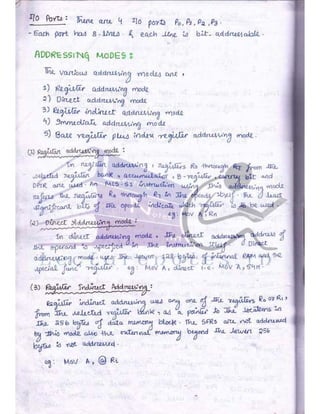 I/O Ports : There are 4 I/O ports P0, P1, P2, P3.
- Each port has 8-lines & each line is bit-addressable.
ADDRESSING MODES :
The various addressing modes are,
1) Register addressing mode
2) Direct addressing mode
3) Register indirect addressing mode
4) Immediate addressing mode
5) Base register plus index register addressing mode.
(1) Register addressing mode :
In register addressing, Registers R0 through R7 from the
selected register bank, accumulator, B-register, carry bit and
DPTR are used. An MCS-51 instruction using this addressing mode
the registers R0 through R7. In the 3 least
significant bits of the opcode indicate which register is to be used
eg: MOV A, Rn
(2) Direct Addressing mode :
In direct addressing mode, the direct address of
the operand is specified in the instruction itself. Direct
addressing mode uses the lower 128 bytes of internal RAM and the
special func register. eg: MOV A, direct i.e. MOV A, 54H.
(3) Register Indirect Addressing :
Register indirect addressing uses any one of the registers R0 or R1,
from the selected register bank, as a pointer to the locations in
the 256 bytes of data memory block. The SFRs are not addressed
by this mode also the external memory beyond the lower 256
bytes is not addressed.
eg: MOV A, @ Ri